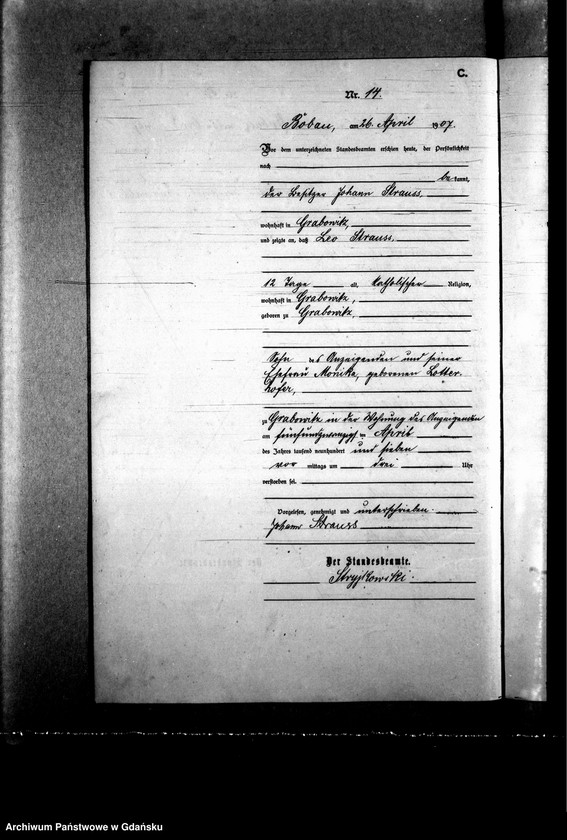 C.
Nr. 14.
Bobau, am 26. April 1907.
Vor dem unterzeichneten Standesbeamten erschien heute, der Persönlichkeit
nach
be kannt,
der Besitzer Johann Strauss
wohnhaft in Grabowitz,
und zeigte an, daß Leo Strauss,
12 Tage alt, katholischer Religion,
wohnhaft in Grabowitz,
geboren zu Grabowitz,
Sohn des Anzeigenden und seiner
Ehefrau Monika, geborenen Lotter-
hofer,
zu Grabowitz in der Wohnung des Anzeigenden
am fünfundzwanzigsten April
des Jahres tausend neunhundert und sieben
vor mittags um drei Uhr
verstorben sei.
Vorgelesen, genehmigt und unterschrieben.
Johann Strauss
Der Standesbeamte.
Stryjkowski.
Archiwum Państwowe w Gdańsku